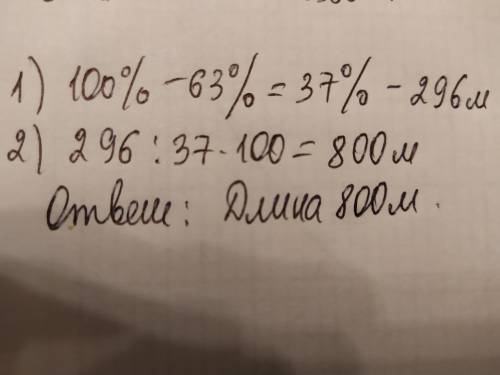 1) 100% - 63% = 37% - 296м
2) 296 : 37 · 100 = 800м
Ответ: Длина 800м.